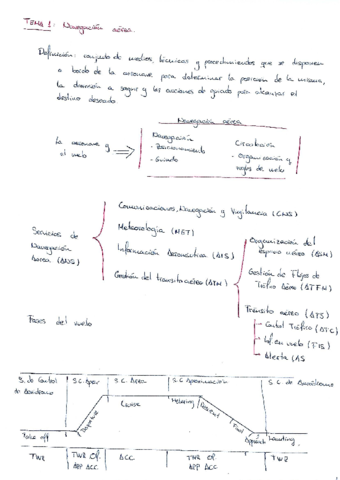 TEMA 1: Navegación aérea.
Definición: conjunto de medios, técnicas y procedimientos que se disponen
a bordo de la aeronave para determinar la posición de la misma,
la dirección a seguir y las acciones de guiado para alcanzar el
destino deseado
Navegación aérea
La aeronave y
el vuelo
Navegación
- Posicionamiento
- Guiado
Circulación
- Organización y
reglas de vuelo
Servicios de
Navegación
Aérea (ANS)
Comunicaciones, Navegación y Vigilancia (CNS)
Meteorología (MET)
Información Aeronáutica (AIS)
Gestión del tránsito aéreo (ATM)
Organización del
espacio aéreo (ASM)
Gestión de Flujos de
Tráfico Aéreo (ATFM)
Tránsito aéreo (ATS)
- Control Tráfico (ATC)
- Inf en vuelo (FIS)
- Alerta (AS
Fases del vuelo
S. de Control
de Aeródromo
S.C. Aprox
S.C. Área
S.C. Aproximación
S.C. de Aeródromo
Take off
Departure
Cruise
Metering
Descent
Final
Approach
Landing
TWR
TWR Of
APP ACC
ACC
TWR Of
APP ACC
TWR